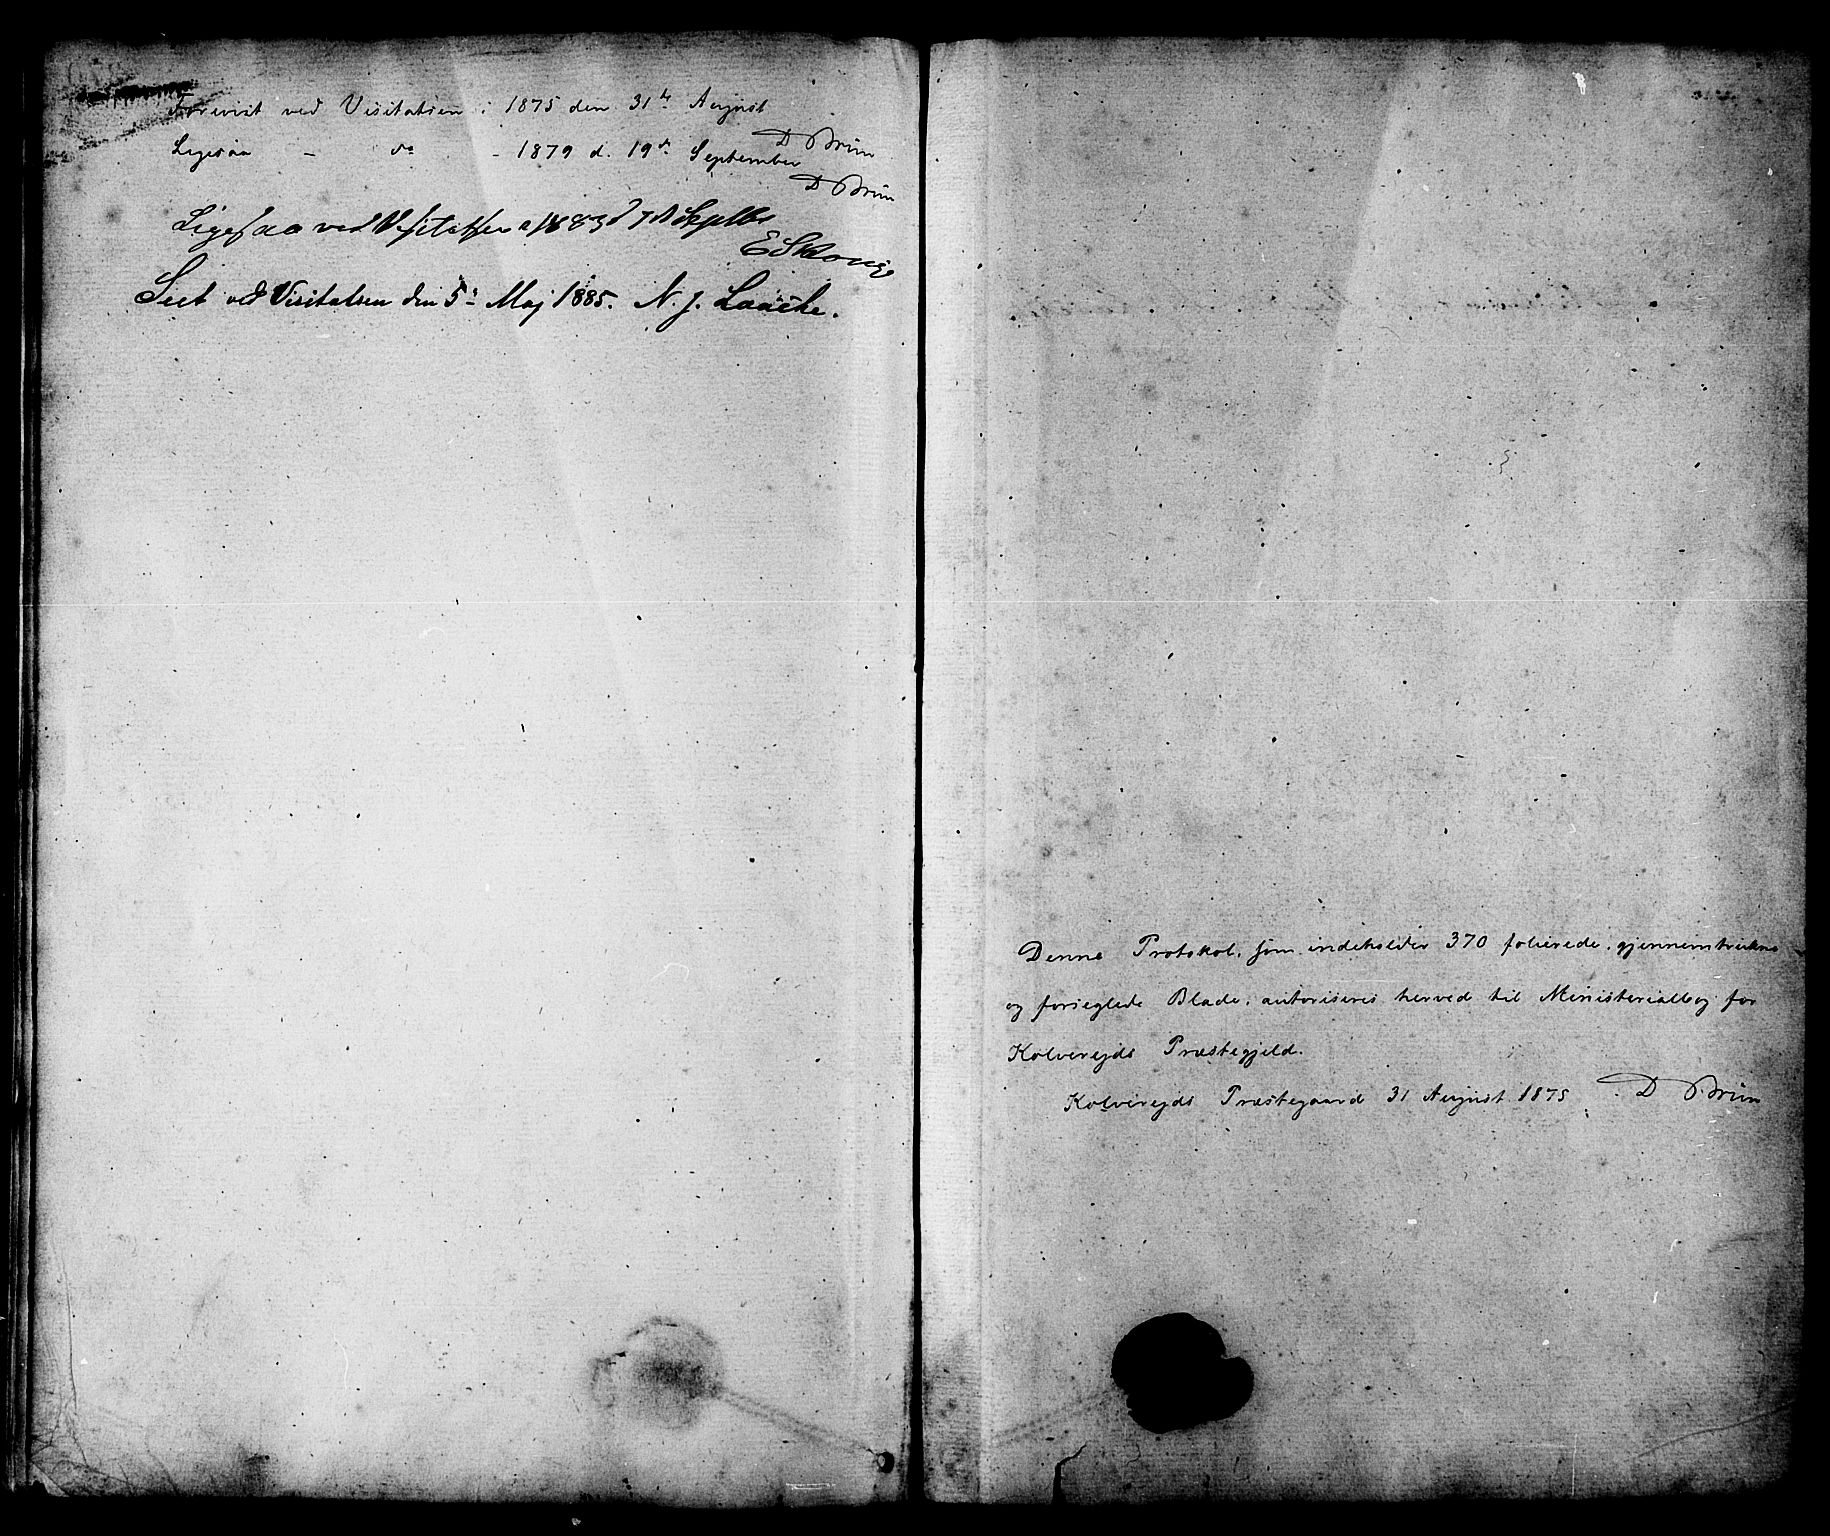 Forevist ved Visitatsen i 1875 den 31te August
D Brün
Ligesaa - do - 1879 d. 19de September
D Brün
Ligesaa ved Visitatsen 1883 d 7d Septbr
Seet ved Visitatsen den 5te Maj 1885. N. J. Laache.
Denne Protokol, som indeholder 370 folierede, gjennemtrukne
og forseglede Blade, autoriseres herved til Ministerialbog for
Kolvereids Præstegjeld.
Kolvereids Præstegaard 31 August 1875. D Brün